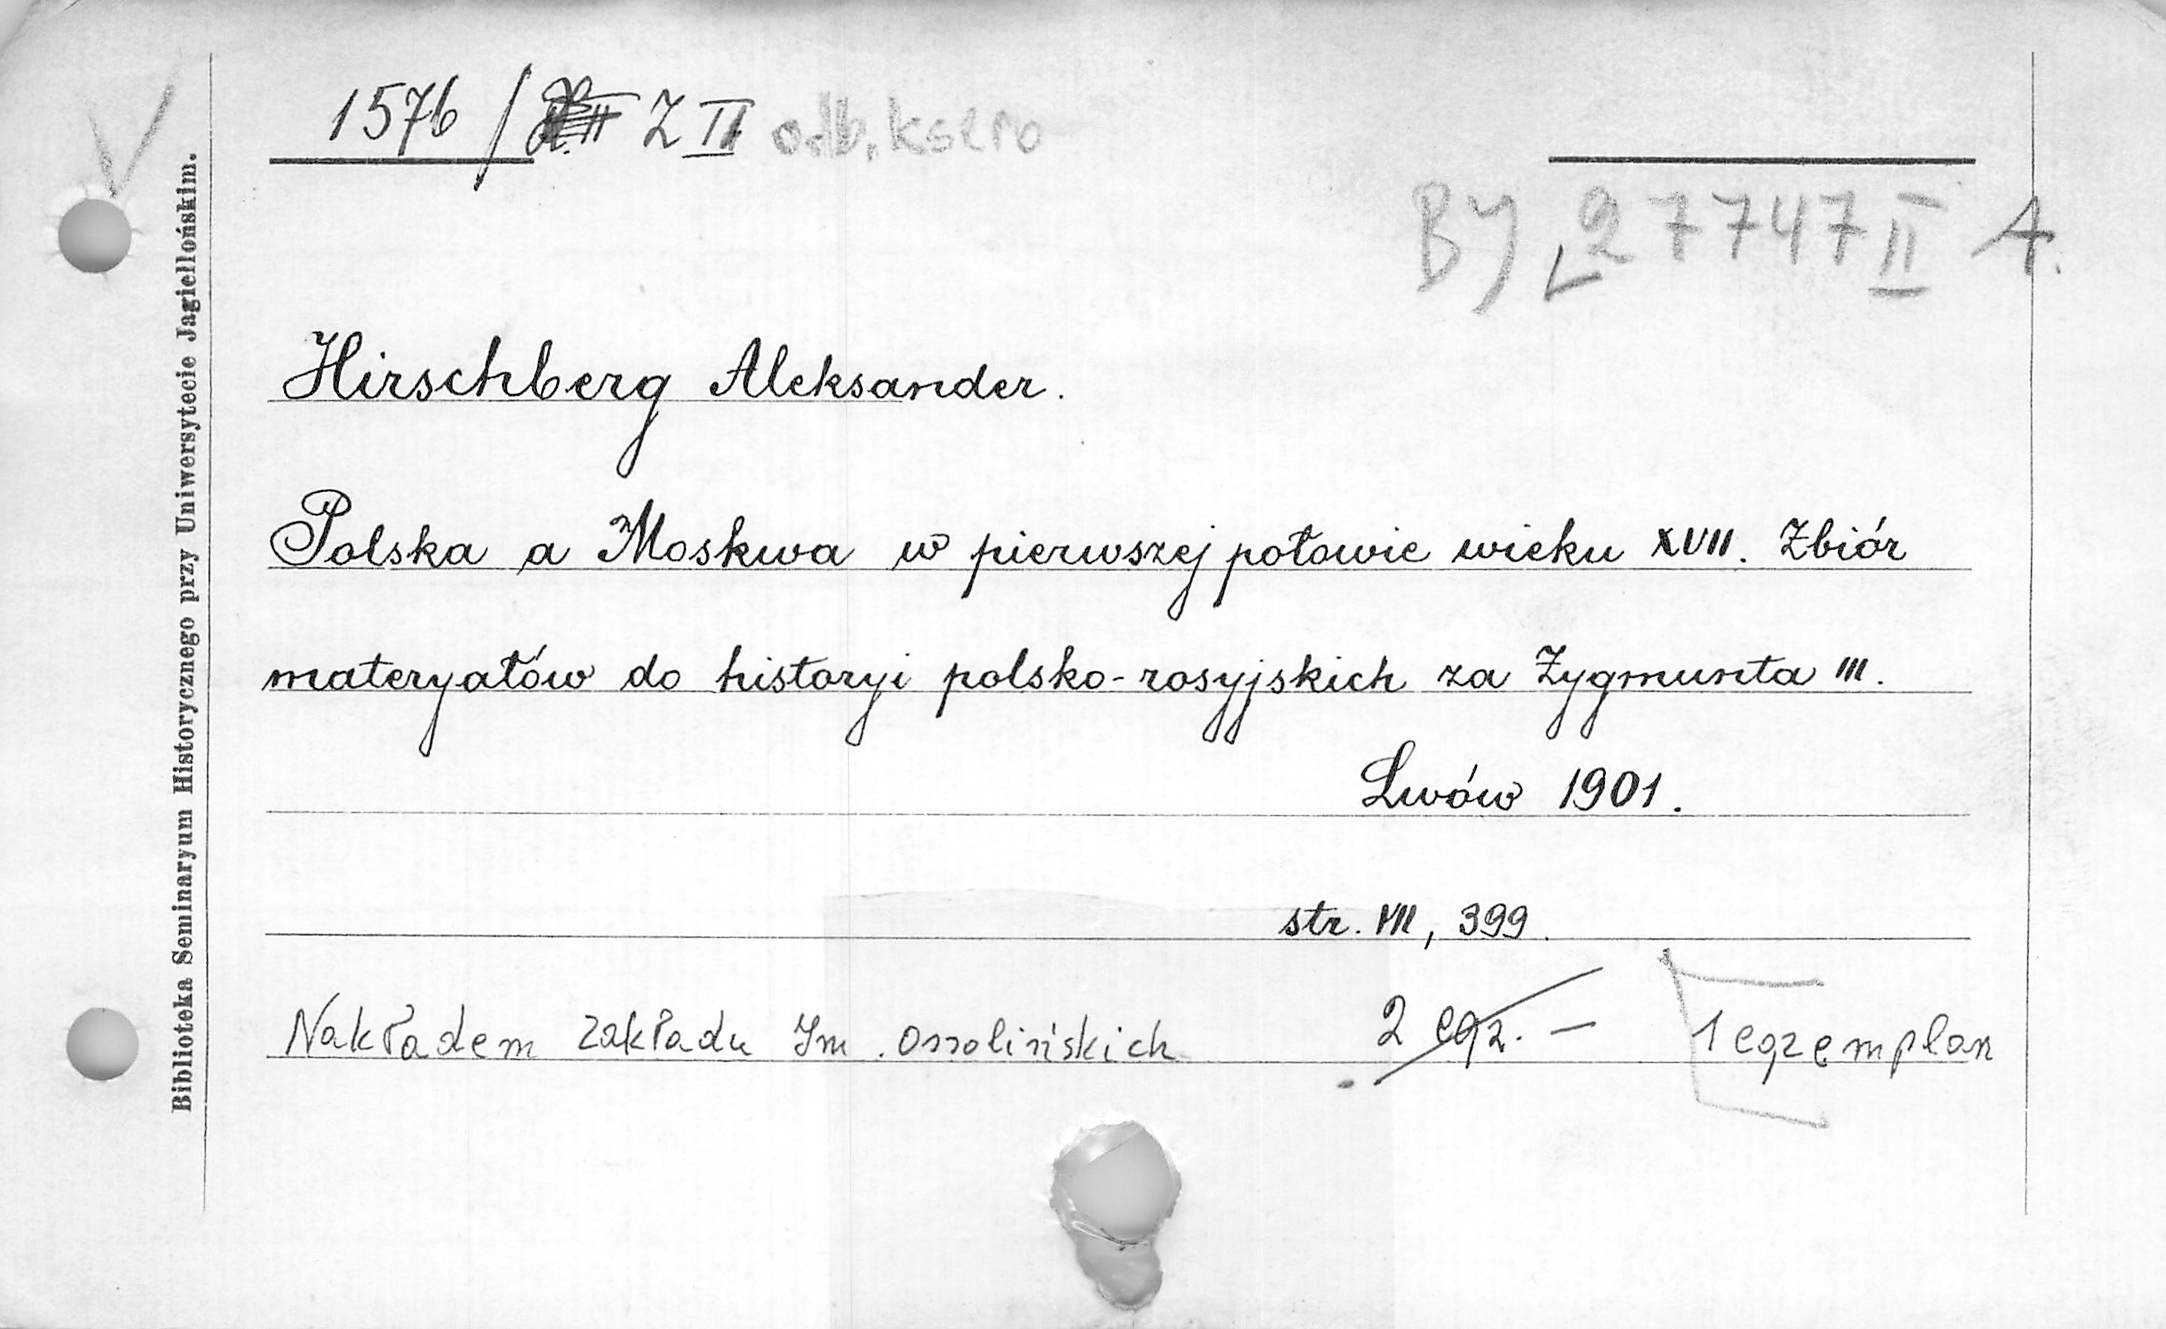 1576 / Z II odb. ksero
BJ 27747 II A.
Hirschberg Aleksander.
Polska a Moskwa w pierwszej połowie wieku XVII. Zbiór
materyałów do historyi polsko-rosyjskich za Zygmunta III.
Lwów 1901.
str. VII, 399.
Nakładem Zakładu Im. Ossolińskich 2 egz. — 1 egzemplarz
Biblioteka Seminaryum Historycznego przy Uniwersytecie Jagiellońskim.